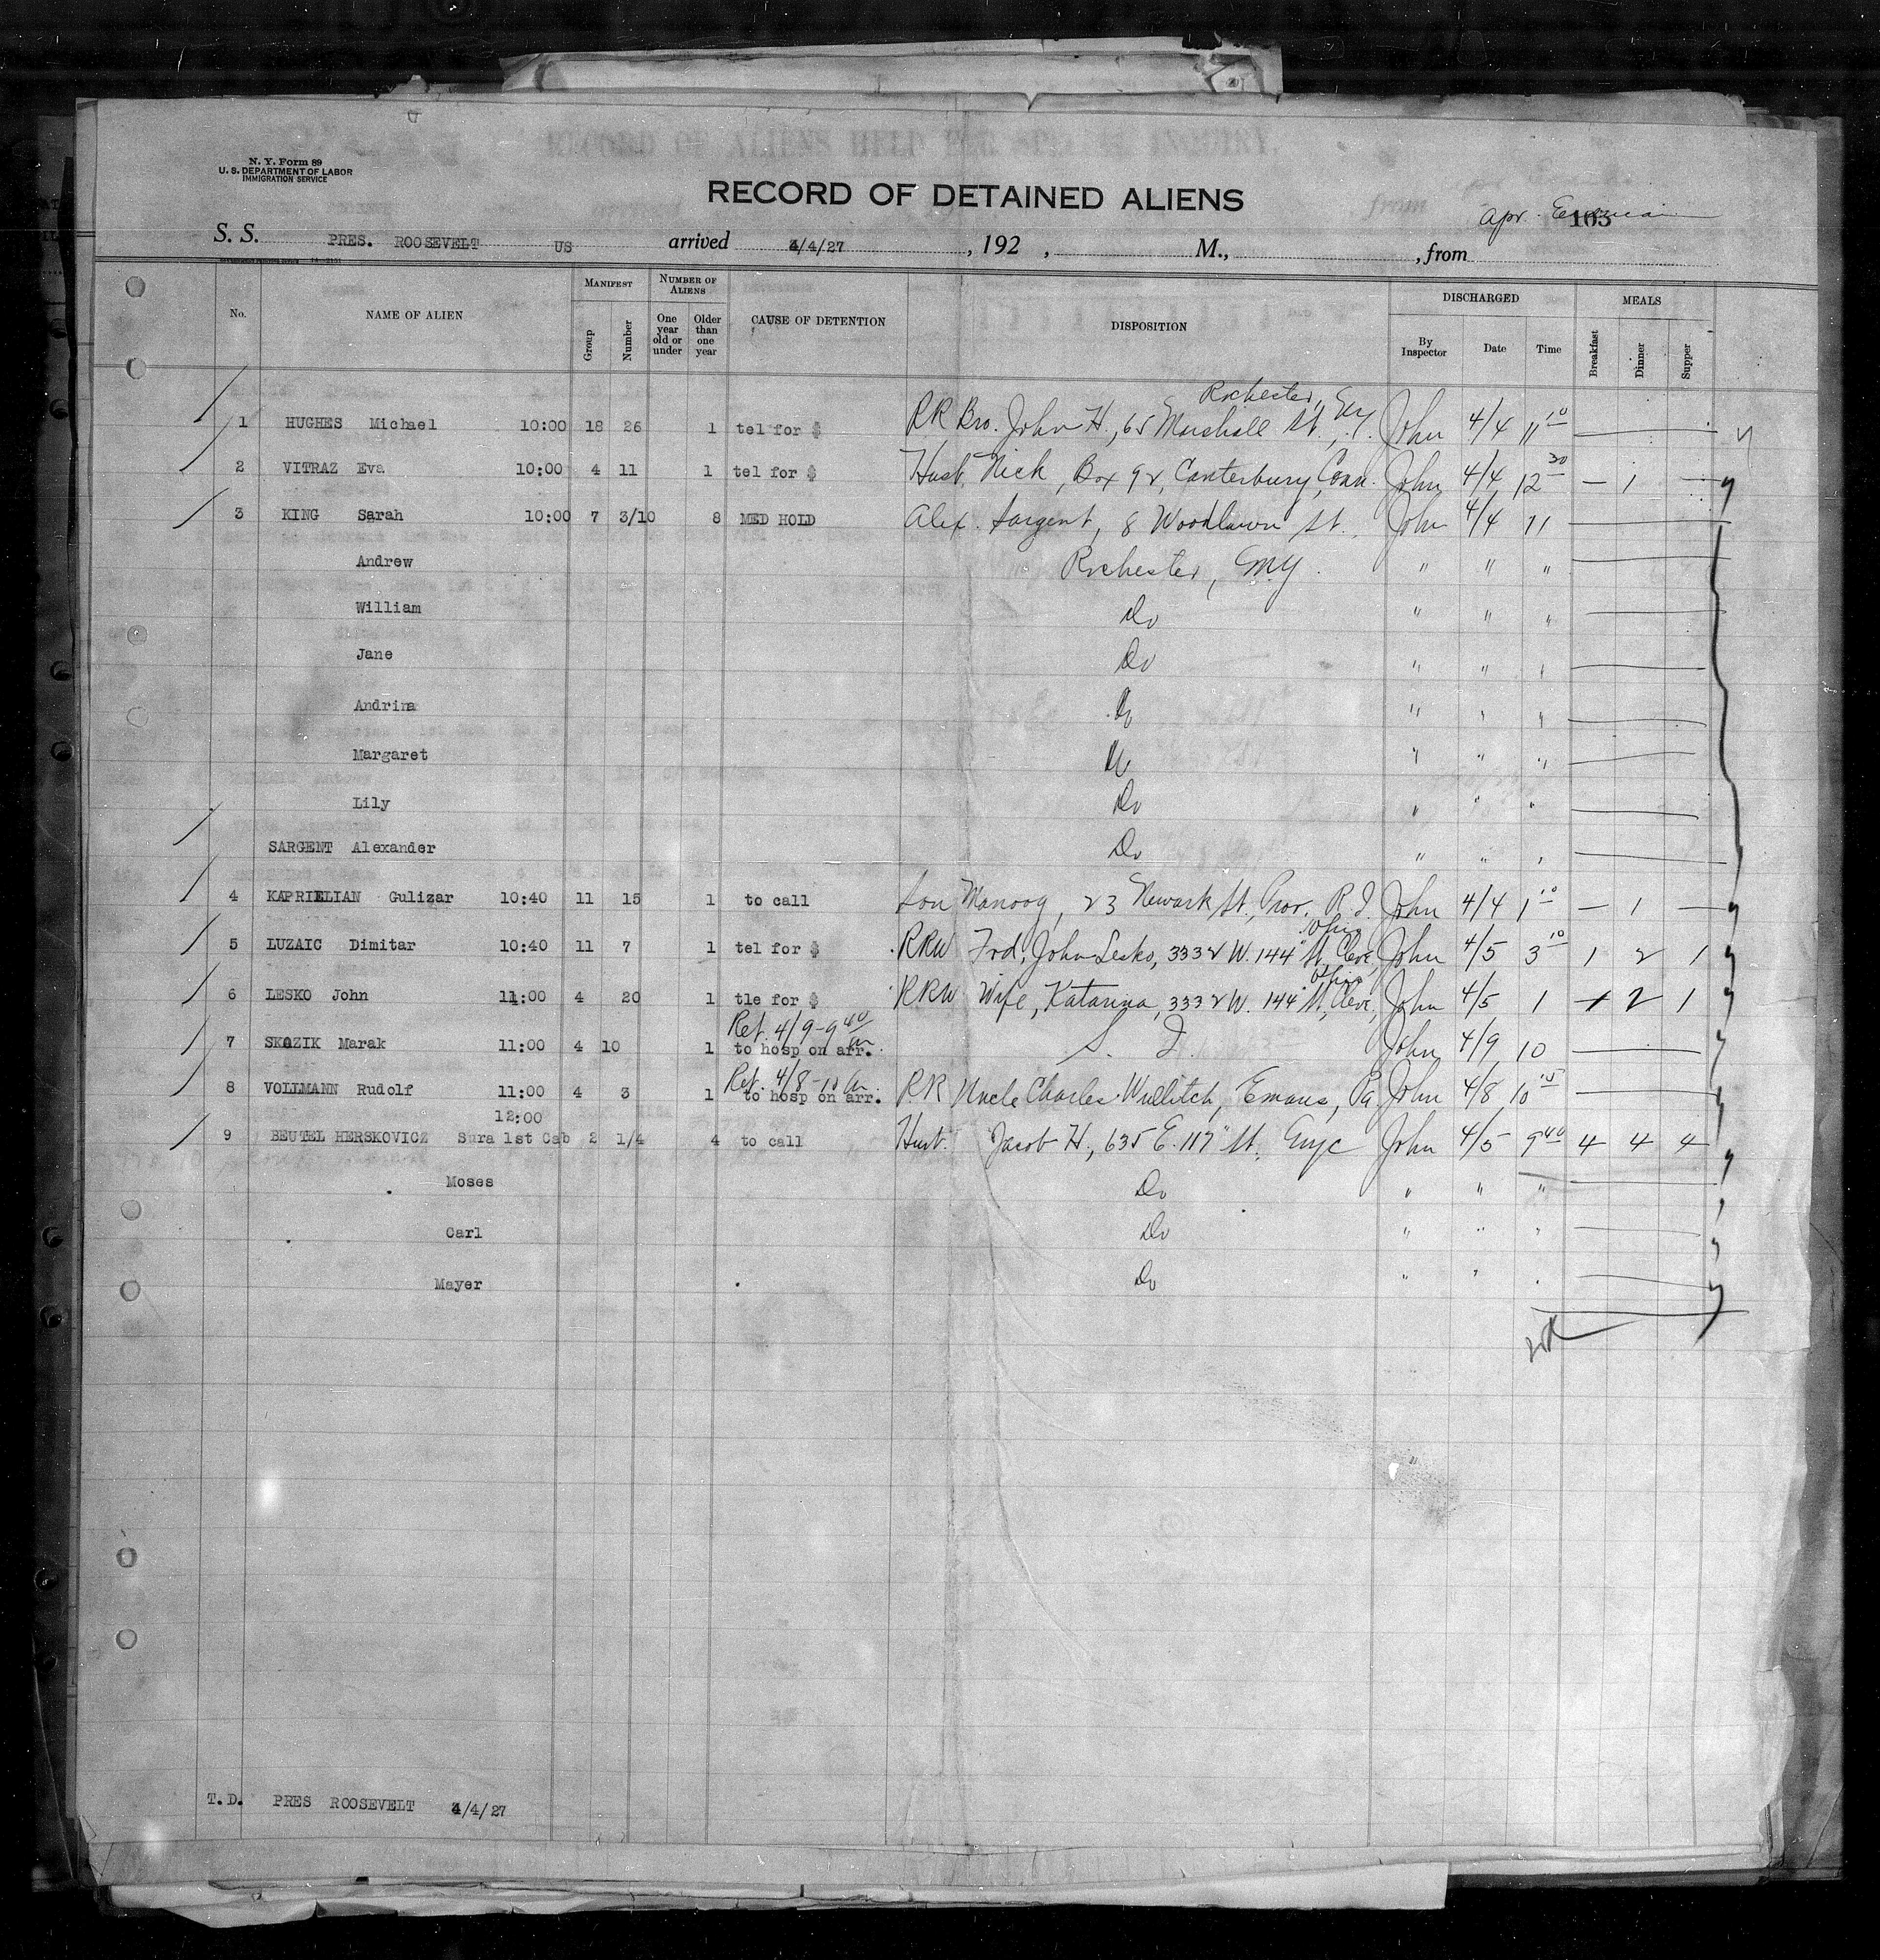 N. Y. Form 89
U. S. DEPARTMENT OF LABOR
IMMIGRATION SERVICE
RECORD OF DETAINED ALIENS
apr.
165
S. S. PRES. ROOSEVELT US arrived 4/4/27, 192 , M., , from
No. NAME OF ALIEN MANIFEST Group Number NUMBER OF ALIENS One year old or under Older than one year CAUSE OF DETENTION DISPOSITION DISCHARGED By Inspector Date Time MEALS Breakfast Dinner Supper
Rochester,
1 HUGHES Michael 10:00 18 26 1 tel for $ RR Bro. John H., 65 Marshall St., N.Y. John 4/4 11 10
2 VITRAZ Eva 10:00 4 11 1 tel for $ Husb, Nick, Box 92, Canterbury, Conn. John 4/4 12 30 — 1 —
3 KING Sarah 10:00 7 3/10 8 MED HOLD Alex. Sargent, 8 Woodlawn St. John 4/4 11
Andrew Rochester, N.Y. " " "
William Do " " "
Jane Do " " "
Andrina Do " " "
Margaret Do " " "
Lily Do " " "
SARGENT Alexander Do " " "
4 KAPRIELIAN Gulizar 10:40 11 15 1 to call Son Manoog, 23 Newark St. Prov. R.I. John 4/4 1 10 — 1 —
Ohio
5 LUZAIC Dimitar 10:40 11 7 1 tel for $ RRW Frd, John Lesko, 3332 W. 144" St, Cleve, John 4/5 3 10 1 2 1
Ohio
6 LESKO John 11:00 4 20 1 tle for $ RRW Wife, Katarina, 3332 W. 144" St, Cleve, John 4/5 1 1 2 1
Ret. 4/9-9 40 am
7 SKOZIK Marak 11:00 4 10 1 to hosp on arr. S. I. John 4/9 10
Ret. 4/8-10 am.
8 VOLLMANN Rudolf 11:00 4 3 1 to hosp on arr. RR Uncle Charles Wullitch, Emaus, Pa. John 4/8 10 15
12:00
9 BEUTEL HERSKOVICZ Sura 1st Cab 2 1/4 4 to call Husb. Jacob H., 635 E. 117" St. NYC John 4/5 9 40 4 4 4
Moses Do " " "
Carl Do " " "
Mayer Do " " "
T.D. PRES ROOSEVELT 4/4/27